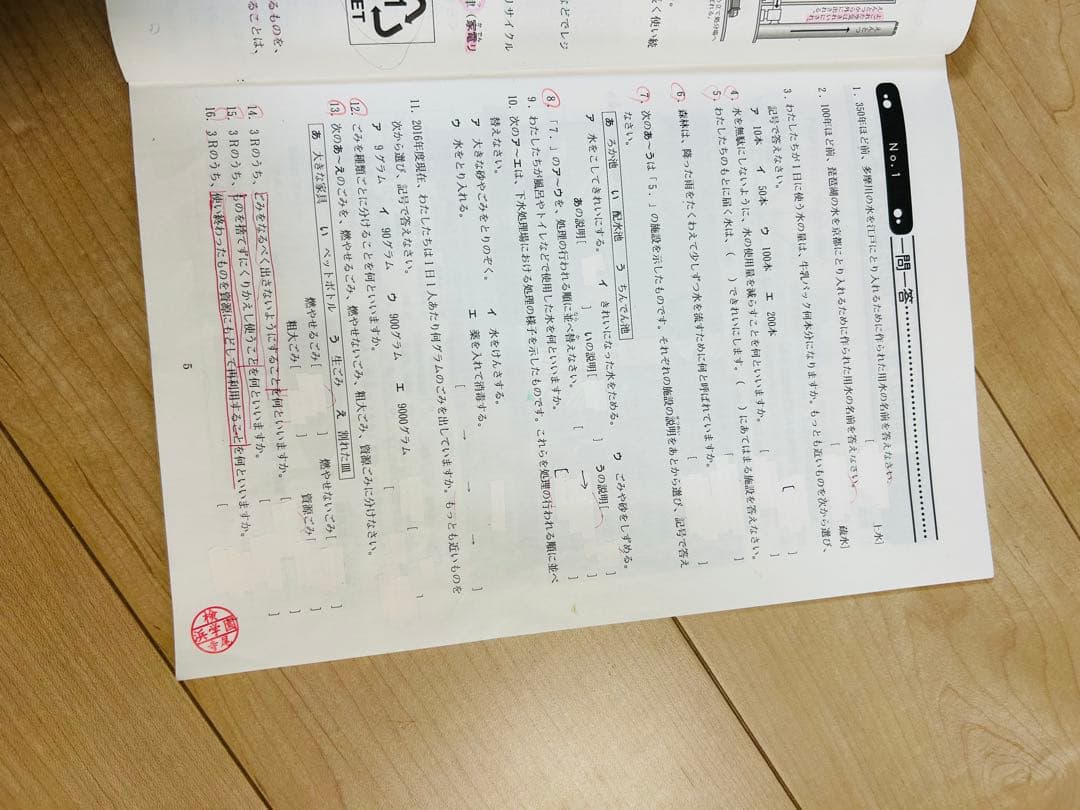 などでレジ
リサイクル
津（家電リ
るものを、
ることは、
ET
1
No. 1
一問一答
1. 350年ほど前、多摩川の水を江戸にとり入れるために作られた用水の名前を答えなさい。
[ 上水]
2. 100年ほど前、琵琶湖の水を京都にとり入れるために作られた用水の名前を答えなさい。
[ 疏水]
3. わたしたちが1日に使う水の量は、牛乳パック何本分になりますか。もっとも近いものを次から選び、
記号で答えなさい。
ア 10本 イ 50本 ウ 100本 エ 200本
[ ]
4. 水を無駄にしないように、水の使用量を減らすことを何といいますか。
[ ]
5. わたしたちのもとに届く水は、( )できれいにします。( )にあてはまる施設を答えなさい。
[ ]
6. 森林は、降った雨をたくわえて少しずつ水を流すために何と呼ばれていますか。
[ ]
7. 次のあ〜うは「5.」の施設を示したものです。それぞれの施設の説明をあとから選び、記号で答え
なさい。
あ ろか池 い 配水池 う ちんでん池
ア 水をこしてきれいにする。 イ きれいになった水をためる。 ウ ごみや砂をしずめる。
あの説明[ ] いの説明[ ] うの説明[ ]
8. 「7.」のア〜ウを、処理の行われる順に並べ替えなさい。
[ → → ]
9. わたしたちが風呂やトイレなどで使用した水を何といいますか。
[ ]
10. 次のア〜エは、下水処理場における処理の様子を示したものです。これらを処理の行われる順に並べ
替えなさい。
ア 大きな砂やごみをとりのぞく。 イ 水をけんさする。
ウ 水をとり入れる。 エ 薬を入れて消毒する。
[ → → → ]
11. 2016年度現在、わたしたちは1日1人あたり何グラムのごみを出していますか。もっとも近いものを
次から選び、記号で答えなさい。
ア 9グラム イ 90グラム ウ 900グラム エ 9000グラム
[ ]
12. ごみを種類ごとに分けることを何といいますか。
[ ]
13. 次のあ〜えのごみを、燃やせるごみ、燃やせないごみ、粗大ごみ、資源ごみに分けなさい。
あ 大きな家具 い ペットボトル う 生ごみ え 割れた皿
燃やせるごみ[ ] 燃やせないごみ[ ]
粗大ごみ[ ] 資源ごみ[ ]
14. 3Rのうち、ごみをなるべく出さないようにすることを何といいますか。
[ ]
15. 3Rのうち、ものを捨てずにくりかえし使うことを何といいますか。
[ ]
16. 3Rのうち、使い終わったものを資源にもどして再利用することを何といいますか。
[ ]
5